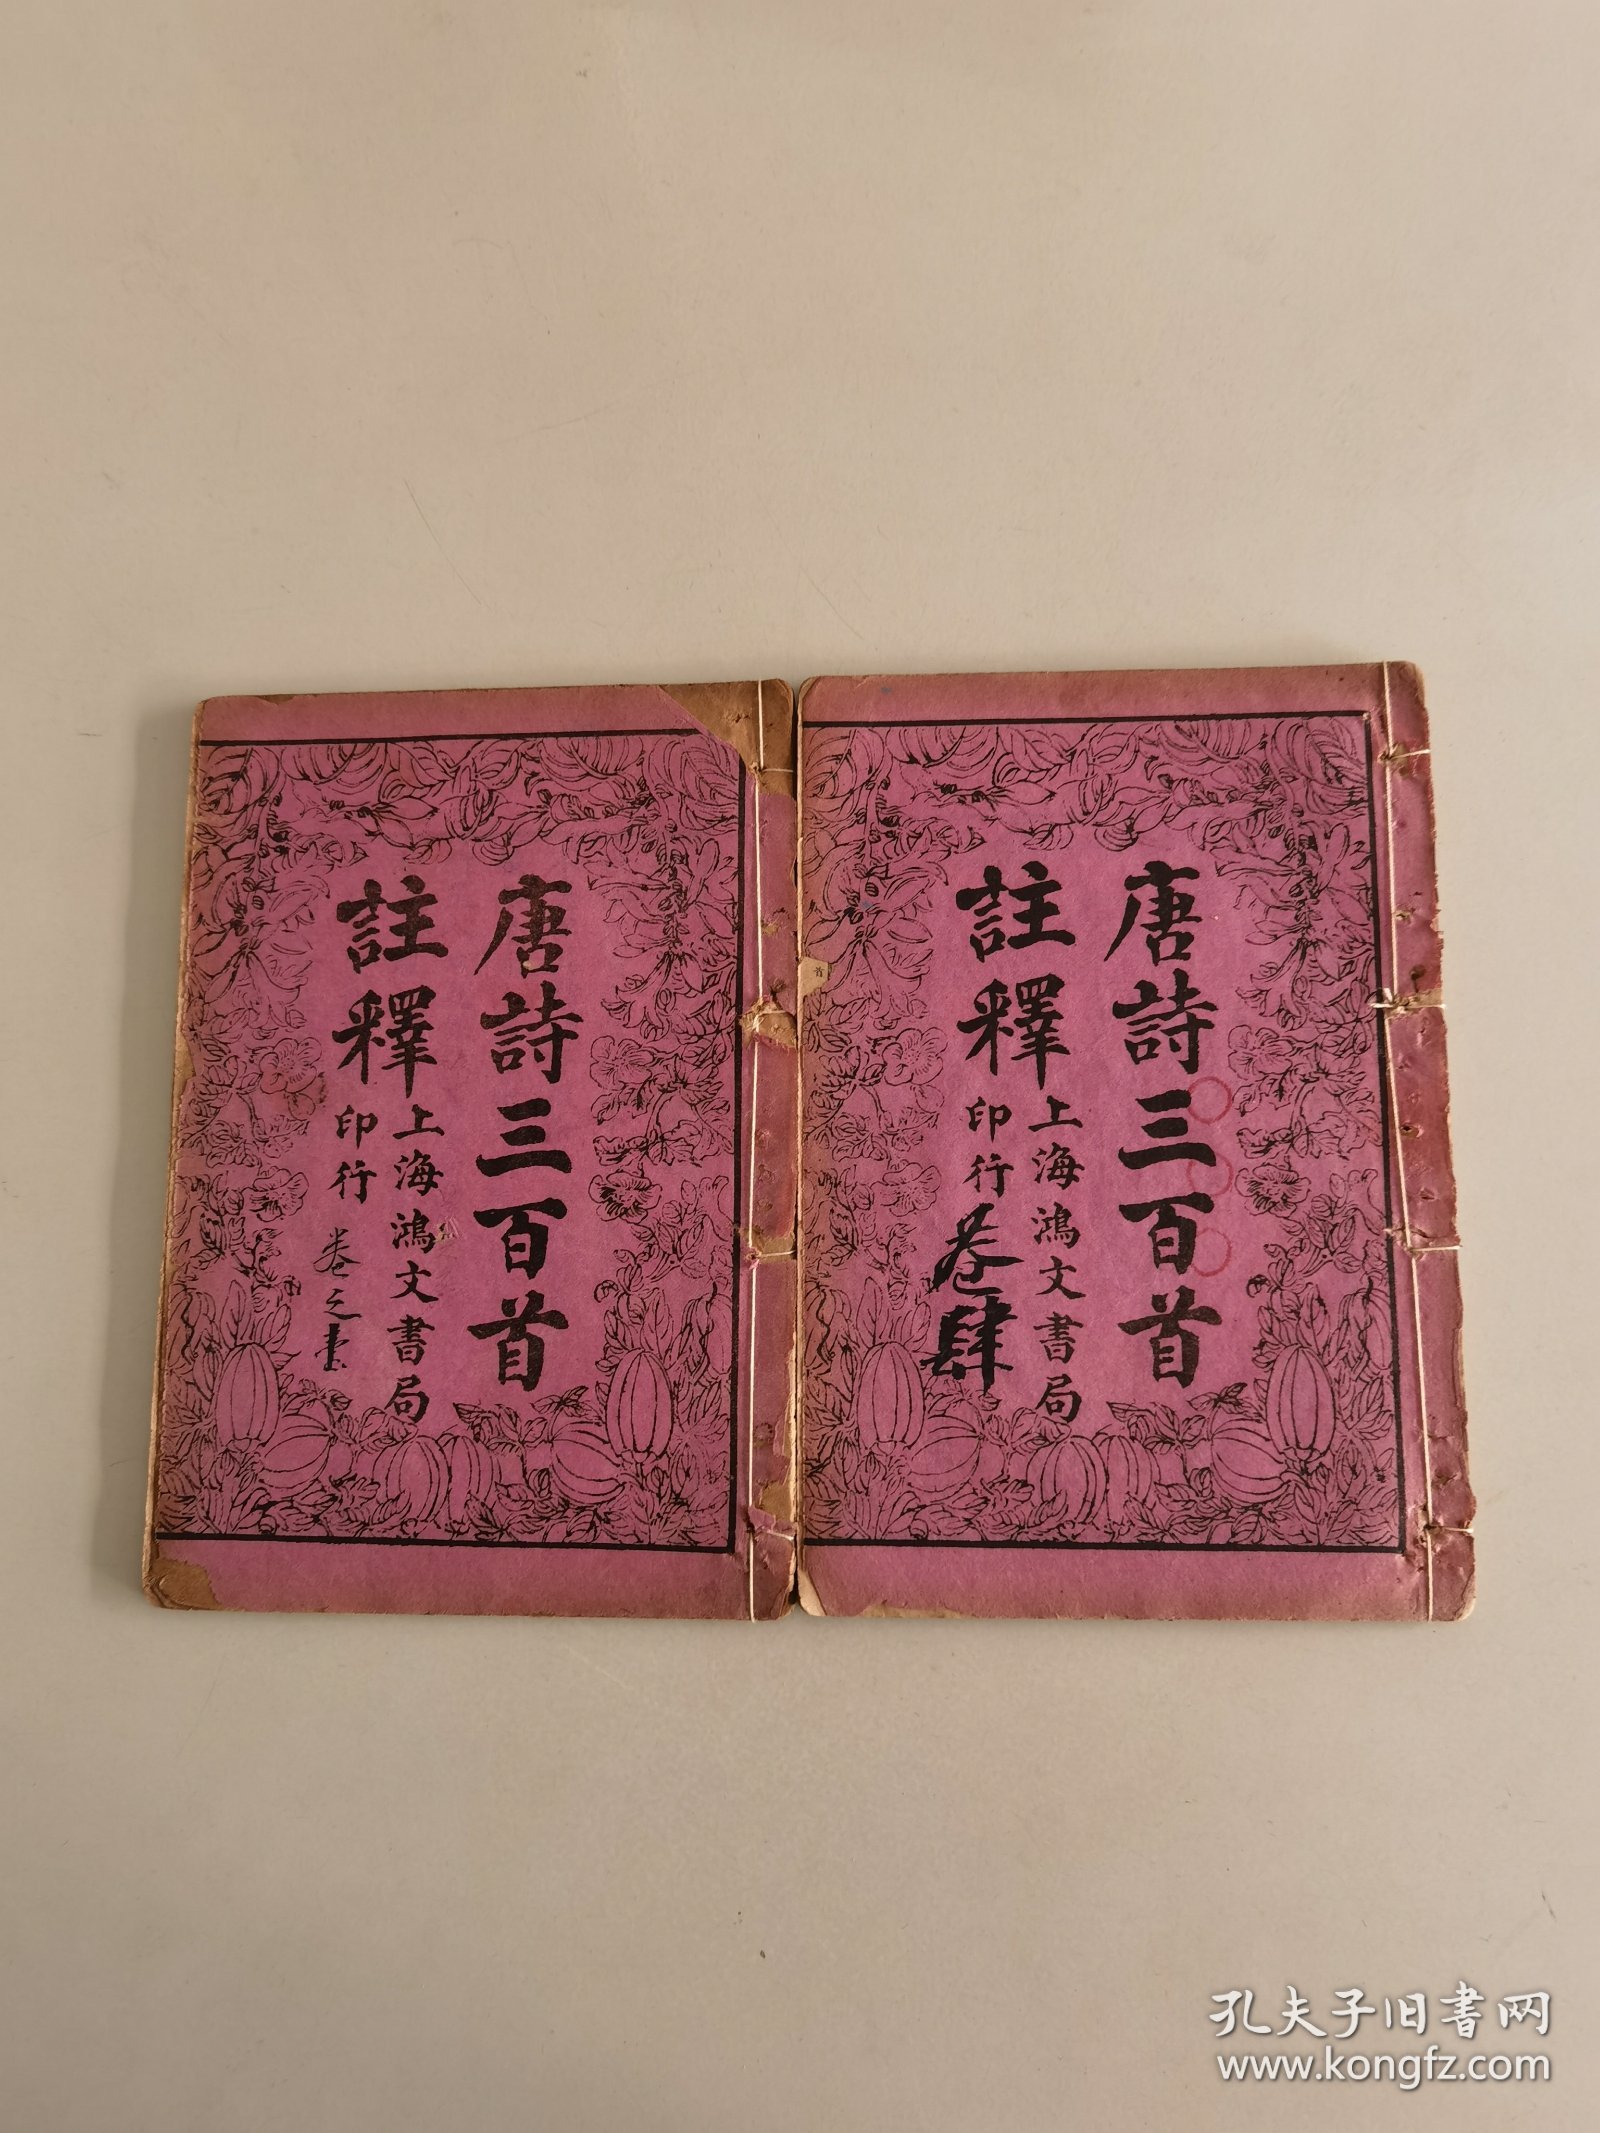 唐詩三百首
註釋
上海鴻文書局
印行
卷之壹
唐詩三百首
註釋
上海鴻文書局
印行
卷肆
首
孔夫子旧书网
www.kongfz.com